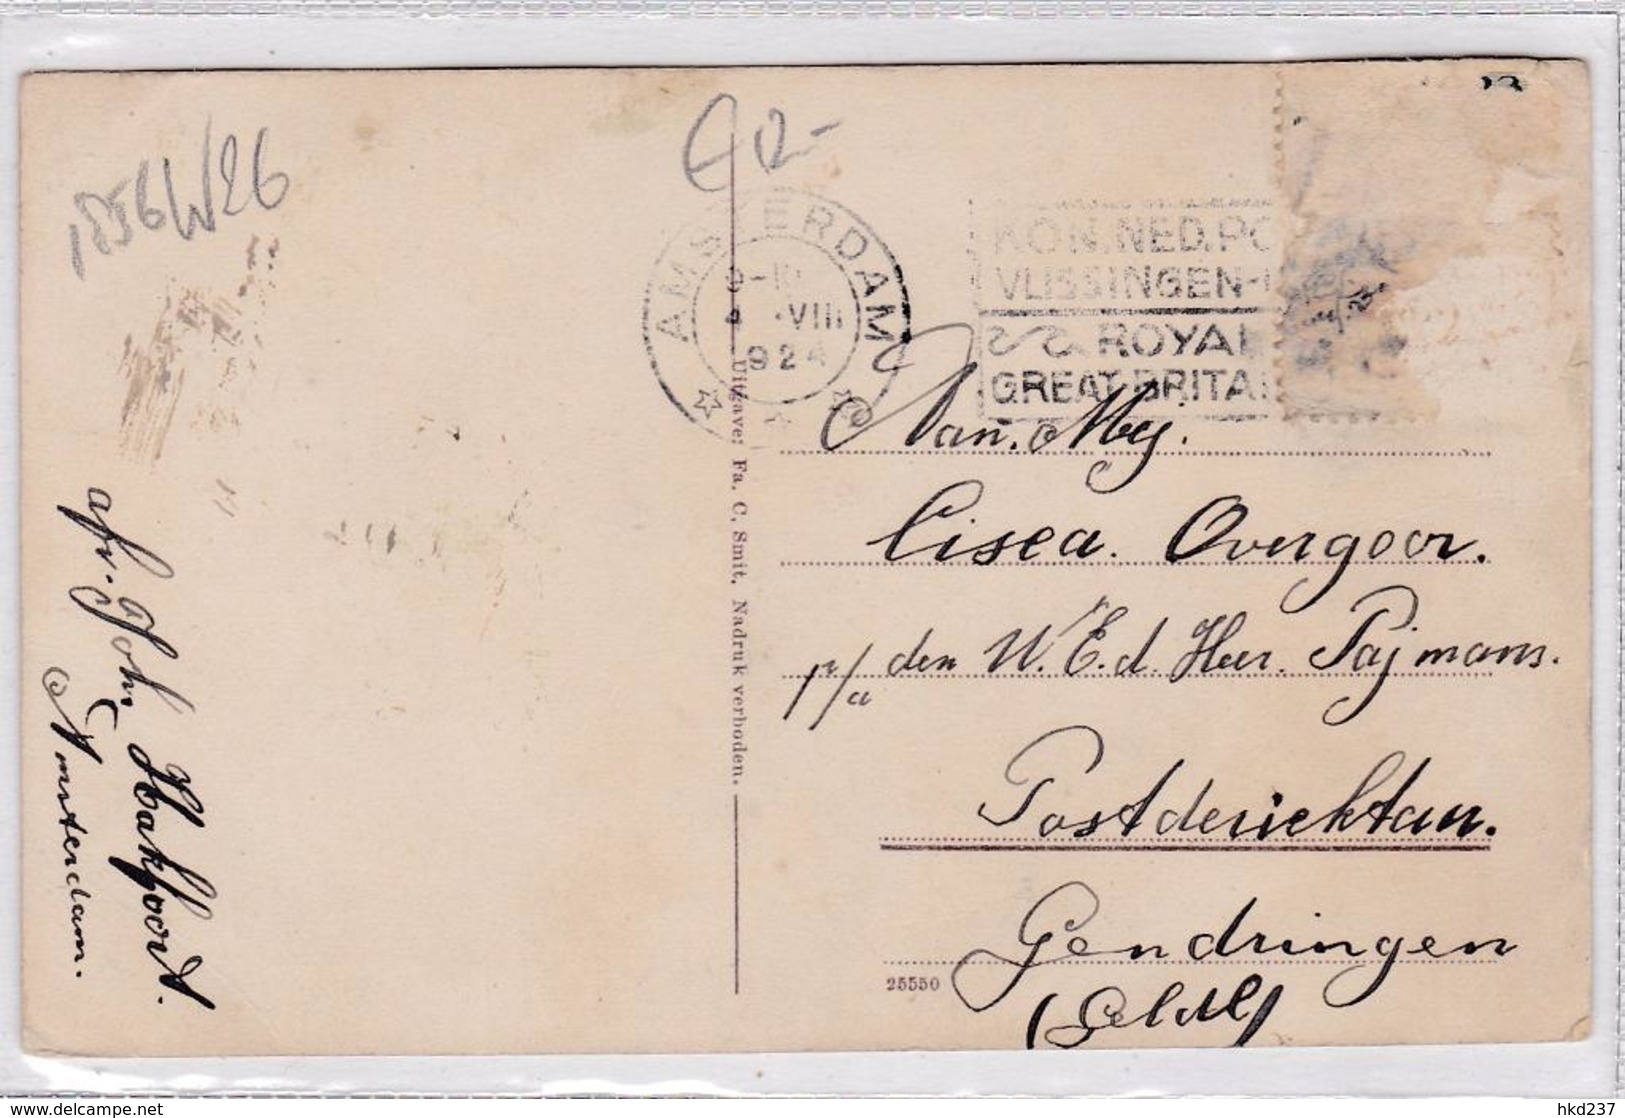 1856W26
€ 12-
AMSTERDAM
9-10
VIII
924
KON. NED. PO
VLISSINGEN-
ROYAL
GREAT BRITAI
Aan. Mej.
Cisca. Overgoor.
p/a den W.E.d. Heer. Pajmans.
Postderiektan.
Gendringen
(Geldl)
25550
Uitgave: Fa. C. Smit. Nadruk verboden.
afz. Joh. Hakfoort.
Amsterdam.
delcampe.net
hkd237